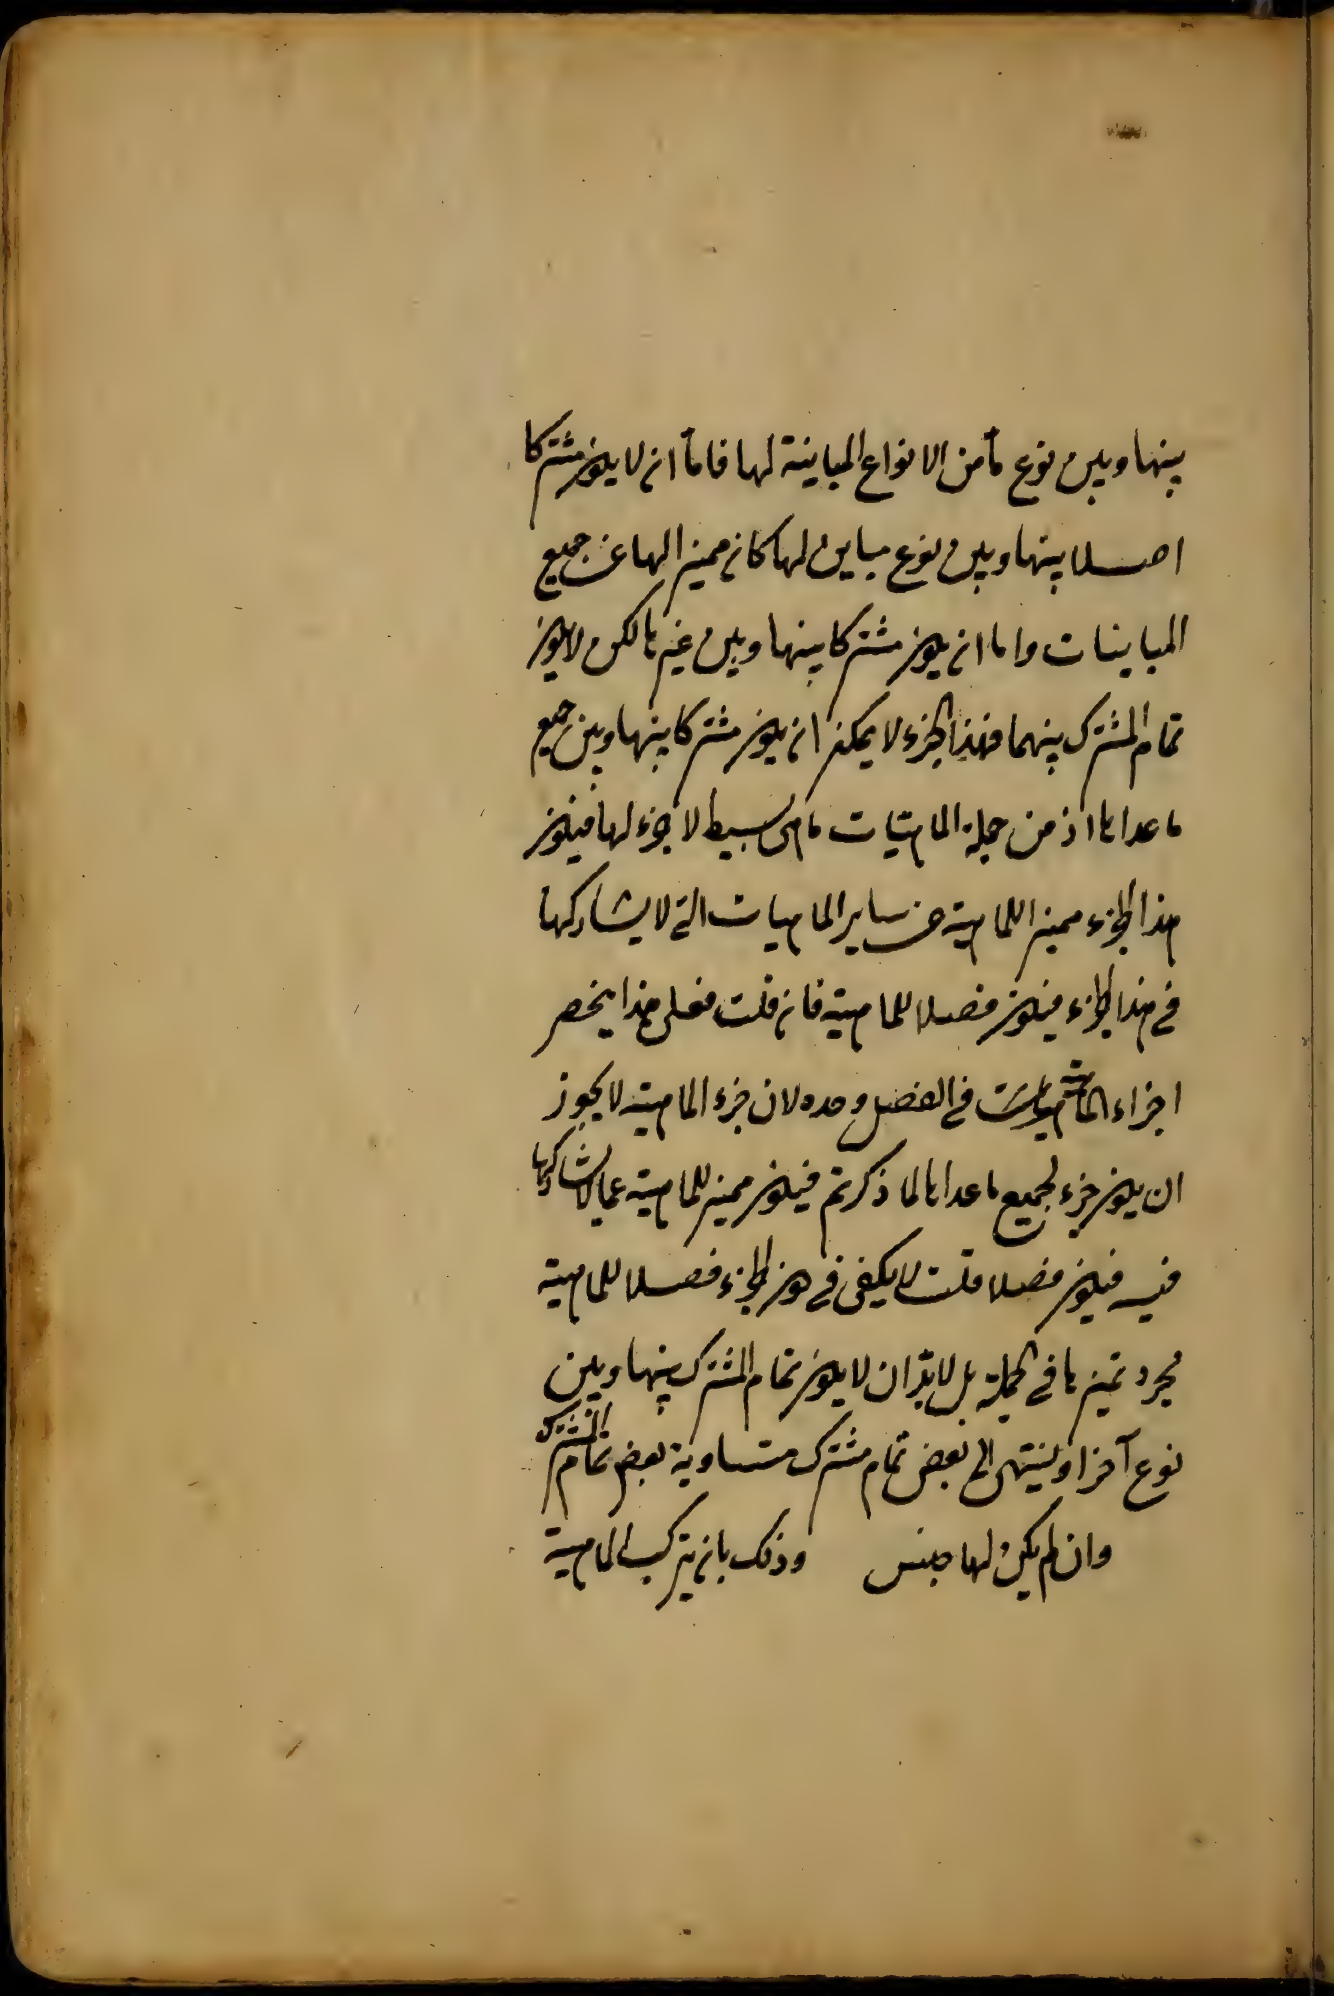 بينها وبين نوع ما من الانواع المباينة لها فاما ان لا يكون مشتركا
اصلا بينها وبين نوع مباين لها كان مميزا لها عن جميع
المباينات واما ان يكون مشتركا بينها وبين غيرها لكن لا يكون
تمام المشترك بينهما فهذا الجزء لا يمكن ان يكون مشتركا بينها وبين جميع
ما عداها اذ من جملة الماهيات ماهي بسيط لا جزء لها فيكون
هذا الجزء مميزا للماهية عن ساير الماهيات التي لا يشاركها
في هذا الجزء فيكون فصلا للماهية فان قلت فعلى هذا ينحصر
اجزاء الماهية في الفصل وحده لان جزء الماهية لا يجوز
ان يكون جزء لجميع ما عداها لما ذكرتم فيكون مميز للماهية عما لا يشاركها
فيه فيكون فصلا قلت لا يكفي في كون الجزء فصلا للماهية
مجرد تميزها في الجملة بل لا بد ان لا يكون تمام المشترك بينها وبين
نوع آخر او ينتهي الى بعض تمام مشترك متساوية بعض تمام المشترك
وان لم يكن لها جنس وذلك بان يتركب الماهية